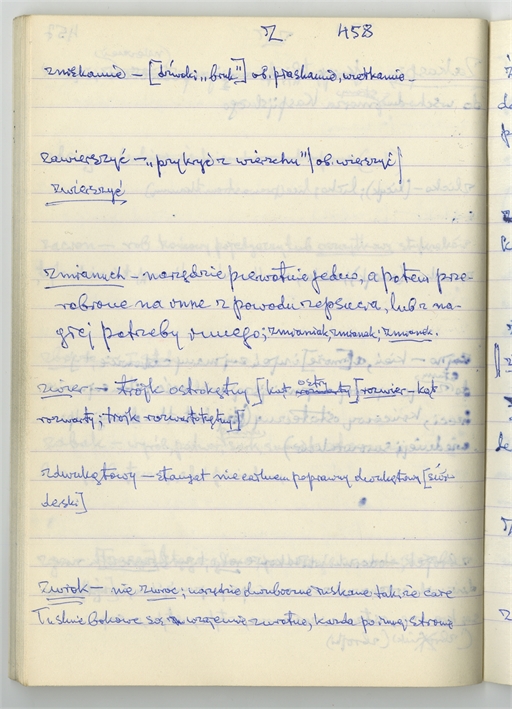 Z 458
zniskamie – [dówcki "bruk"] ob. piaskamie, wretkamie
zawierszyć – "przykryć z wierzchu" / ob. wierszyć /
zwierszyć
zmianuch – narządzie pierwotnie jedno, a potem prze-
robione na inne z powodu zepsucia, lub z na-
głej potrzeby innego; zmianiak, zmianak, zmianek.
zwier – trójk ostrokątny [kąt ostry] rozwier – kąt
rozwarty; trójk rozwartokątny]
zdwukątowy – sztauget nie całkiem poprawny dwukątowy [siór-
derski]
zwrok – nie zwroc; narzędzie dwuboczne łuskane tak, że całe
łusknie bokowe są wzajemnie zwrotne, każda po innej stronie